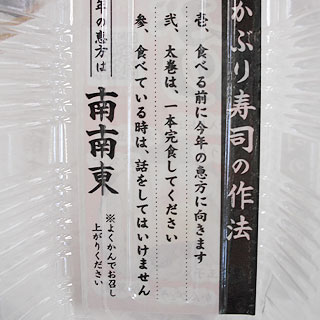 かぶり寿司の作法
壱、食べる前に今年の恵方に向きます
弐、太巻は、一本完食してください
参、食べている時は、話をしてはいけません
年の恵方は
南南東
※よくかんでお召し
上がりください